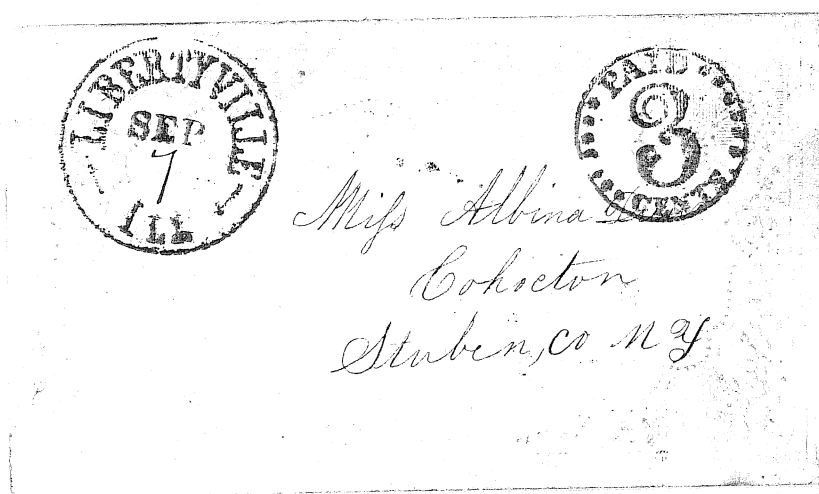 LIBERTYVILLE
SEP
7
ILL
PAID
3
CENTS
Miss Albina
Cohocton
Stuben, Co N Y